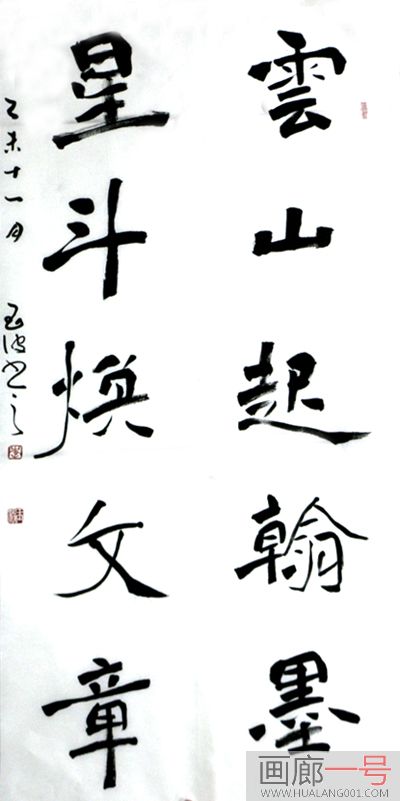 雲山起翰墨
星斗焕文章
乙未十一月 玉波书之
画廊一号
WWW.HUALANG001.COM